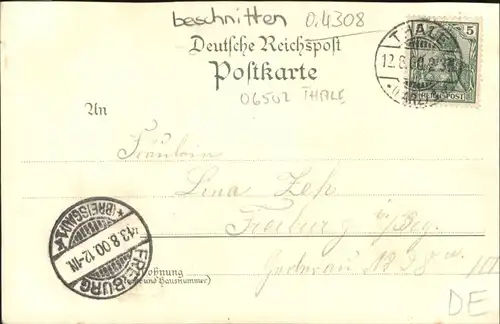 beschnitten 0.4308
Deutsche Reichspost
Postkarte
06502 THALE
THALE
12.8.00.2-3
(HARZ)
5
REICHSPOST
An
Fräulein
Lina Zeh
Freiburg i/Brg.
No 28
Wohnung
(Straße und Hausnummer)
FREIBURG
13.8.00.12-
*(BREISGAU)1*
DE